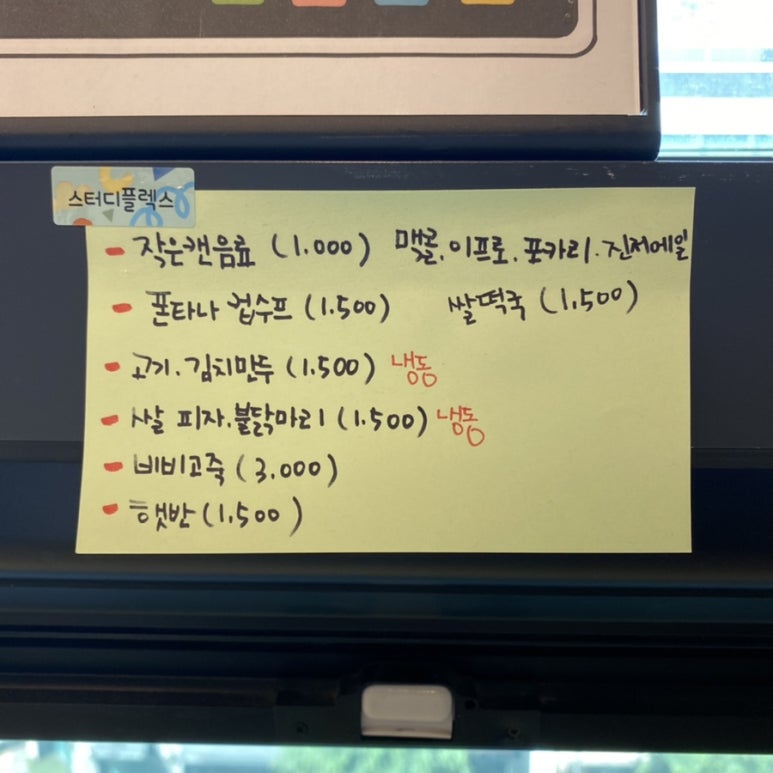 스터디플렉스
- 작은캔음료 (1.000) 맥콜.이프로.포카리.진저에일
- 폰타나 컵수프 (1.500) 쌀떡국 (1.500)
- 고기.김치만두 (1.500) 냉동
- 쌀 피자.불닭마리 (1.500) 냉동
- 비비고죽 (3.000)
- 햇반 (1.500)